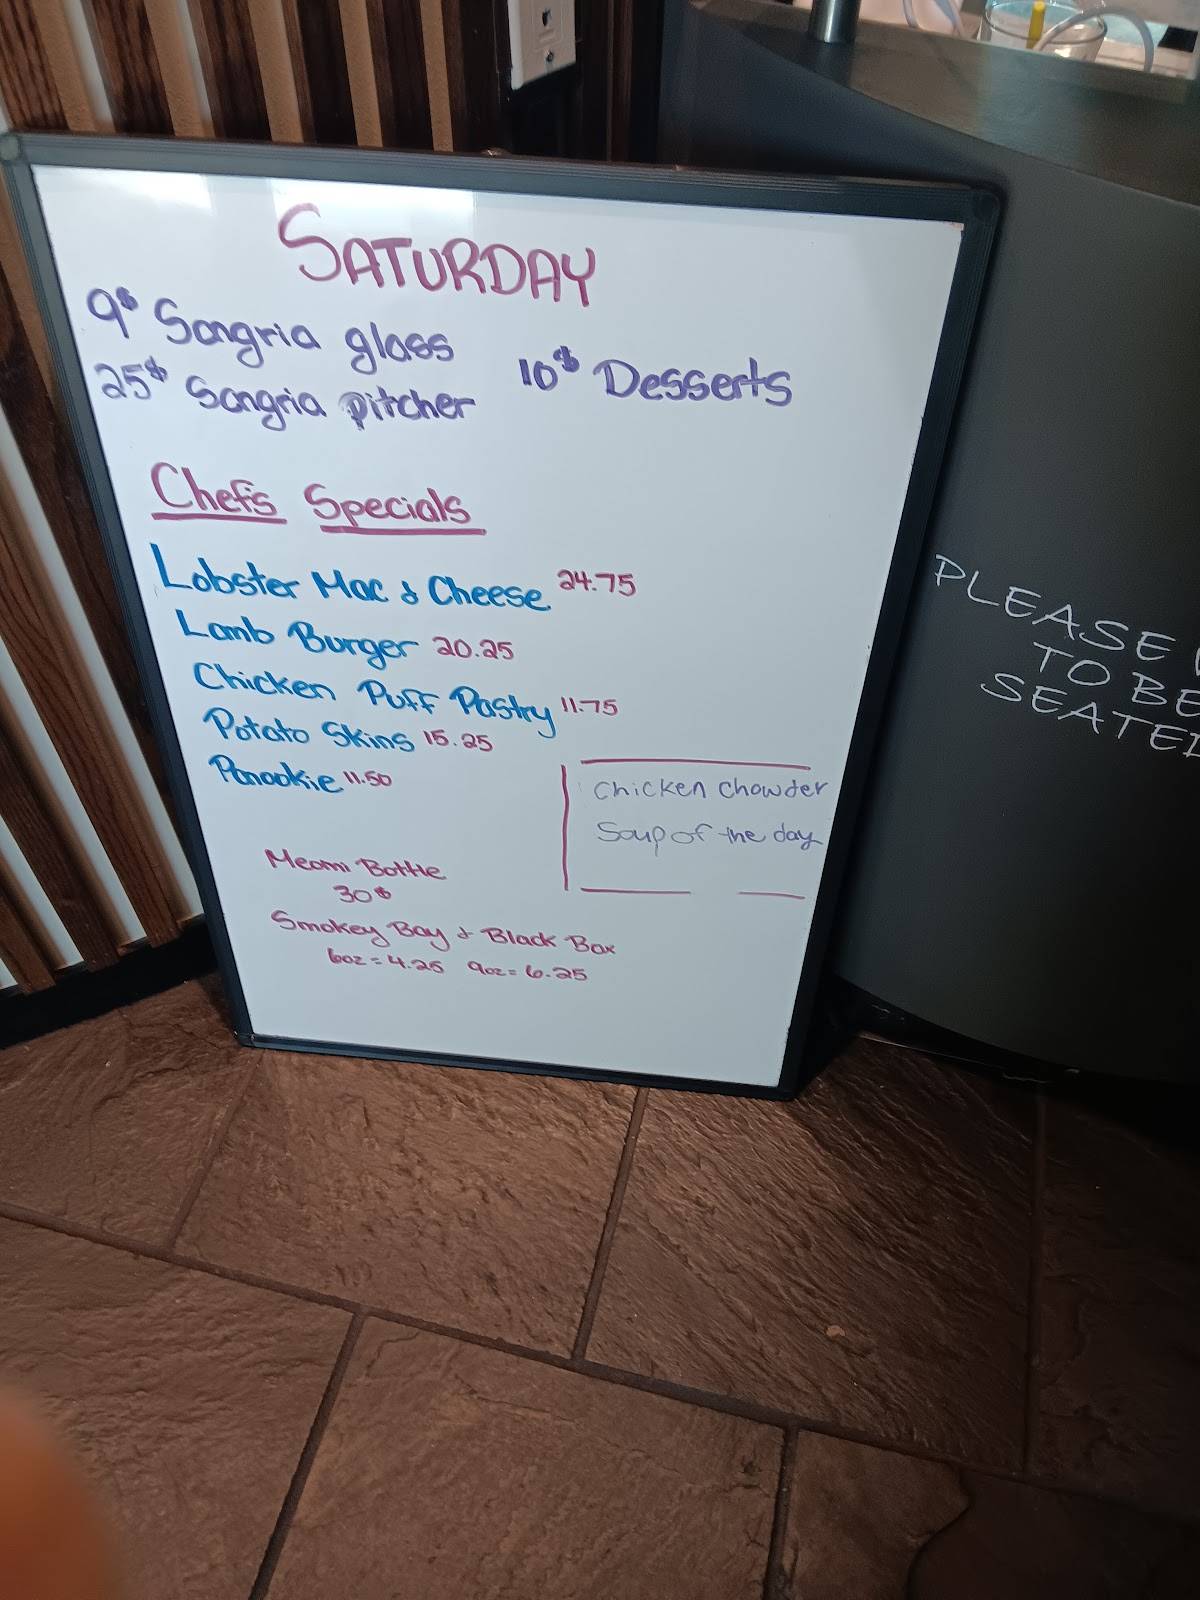 SATURDAY
9$ Sangria glass
25$ Sangria pitcher
10$ Desserts
Chef's Specials
Lobster Mac & Cheese 24.75
Lamb Burger 20.25
Chicken Puff Pastry 11.75
Potato Skins 15.25
Panookie 11.50
Chicken Chowder
Soup of the day
Meomi Bottle
30$
Smokey Bay & Black Box
6oz = 4.25 9oz = 6.25
PLEASE
TO BE
SEATED